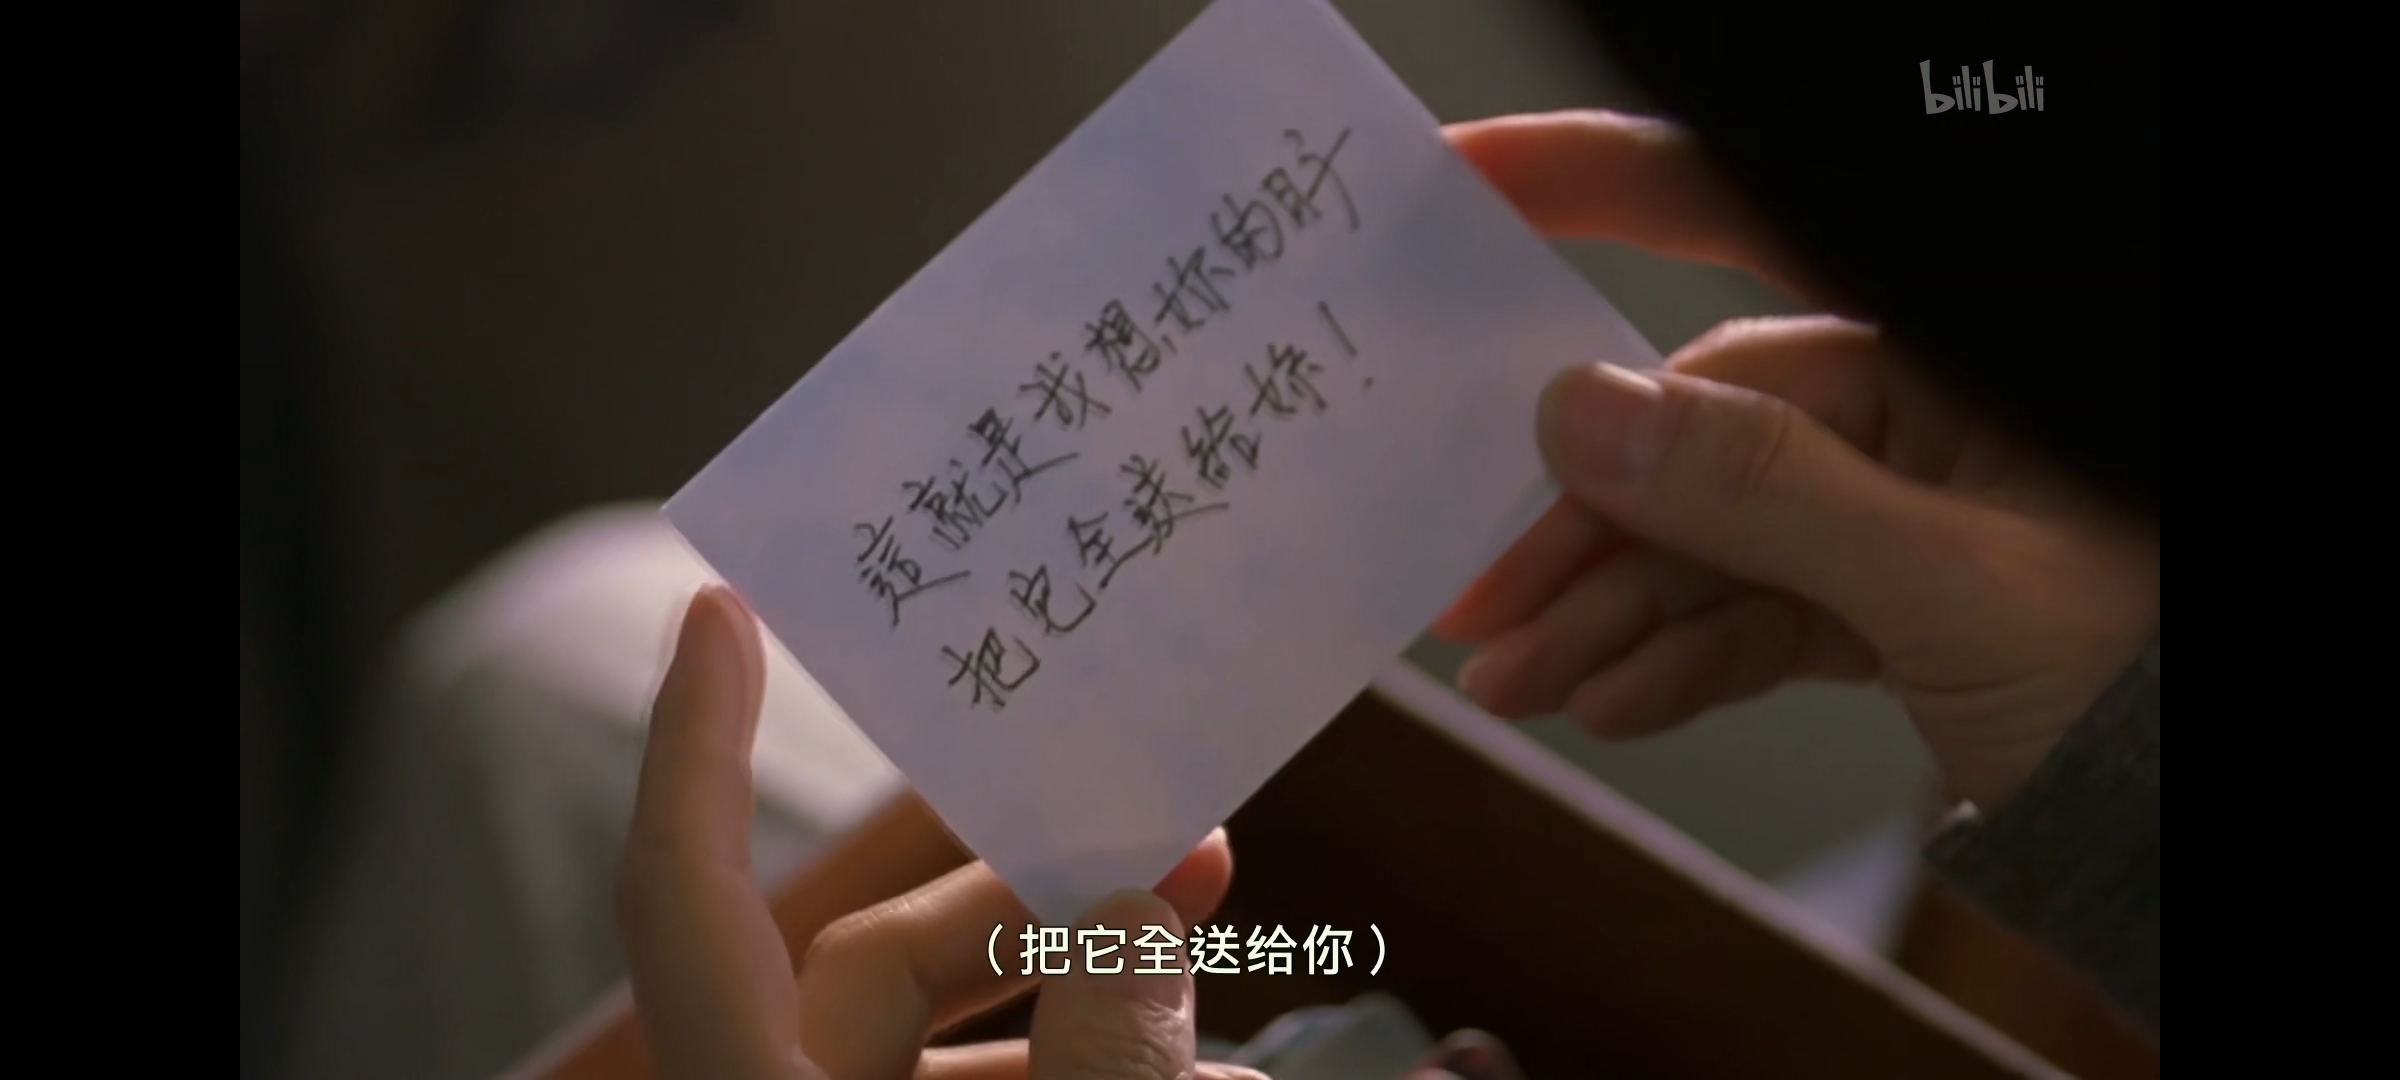 bilibili
這就是我想妳的時
把它全送給妳!
(把它全送给你)